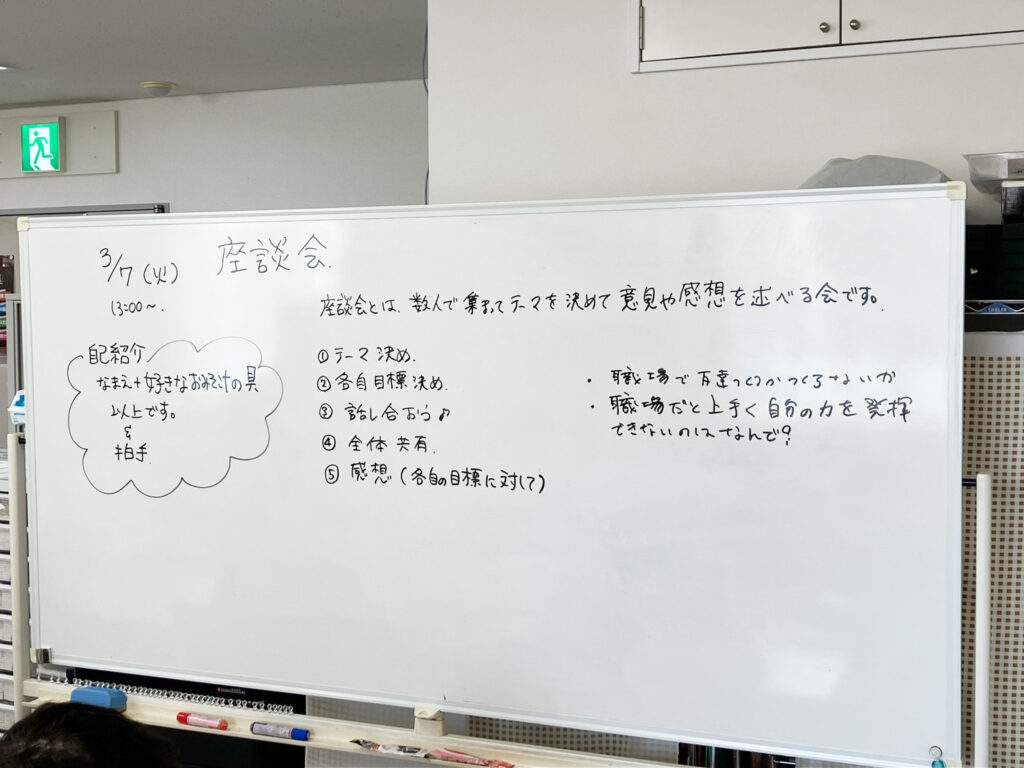 3/7(火)
座談会.
13:00〜.
座談会とは、数人で集まってテーマを決めて意見や感想を述べる会です。
自己紹介
なまえ+好きなおみそ汁の具
以上です。
&
拍手.
①テーマ決め.
②各自目標決め.
③話し合おう♪
④全体共有.
⑤感想(各自の目標に対して)
・職場で友達つくるかつくらないか
・職場だと上手く自分の力を発揮
できないのはなんで?